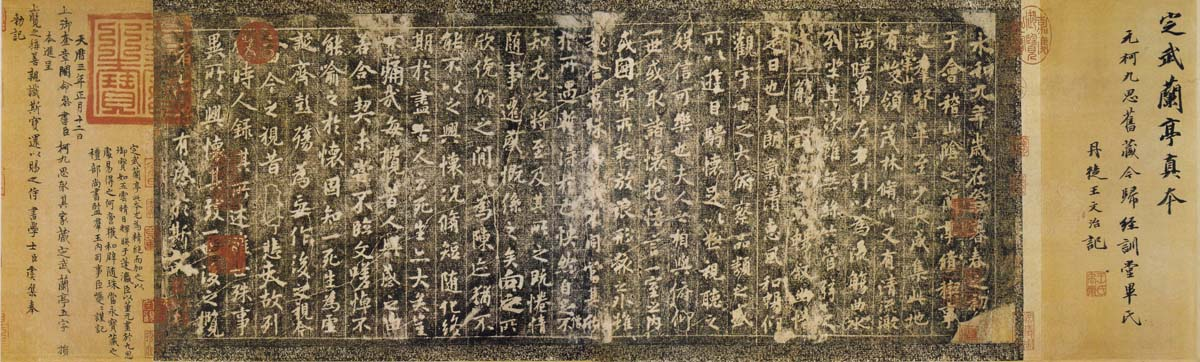 定武蘭亭真本
元柯九思舊藏今歸經訓堂畢氏
丹徒王文治記
永和九年歲在癸丑暮春之初
于會稽山陰之蘭亭脩稧事
也群賢畢至少長咸集此地
有峻領茂林脩竹又有清流激
湍暎帶左右引以為流觴曲水
列坐其次
一觴一詠亦足以暢敘幽情
是日也天朗氣清惠風和暢仰
觀宇宙之大俯察品類之盛
所以遊目騁懷足以極視聽之
娛信可樂也夫人之相與俯仰
一世或取諸懷抱悟言一室之內
或因寄所託放浪形骸之外雖
趣舍萬殊靜躁不同當其欣
於所遇蹔得於己怏然自足不
知老之將至及其所之既惓情
隨事遷感慨係之矣向之所
欣俛仰之間以為陳迹猶不
能不以之興懷況脩短隨化終
期於盡古人云死生亦大矣豈
不痛哉每攬昔人興感之由
若合一契未嘗不臨文嗟悼不
能喻之於懷固知一死生為虛
誕齊彭殤為妄作後之視今
亦由今之視昔悲夫故列
敘時人錄其所述雖世殊事
異所以興懷其致一也後之攬
者亦將有感於斯文
定武蘭亭此本尤為精絕而加之以
御寶如五雲晴日輝映于蓬瀛臣以董元畫於九思
處易得之何啻獲和璧隨珠當永寶藏之
禮部尚書監羣玉內司事臣巙巙謹記
天曆三年正月十二日
上御奎章閣命參書臣柯九思取其家藏定武蘭亭五字損
本進呈
上覽之稱善親識斯寶還以賜之侍書學士臣虞集奉
勅記